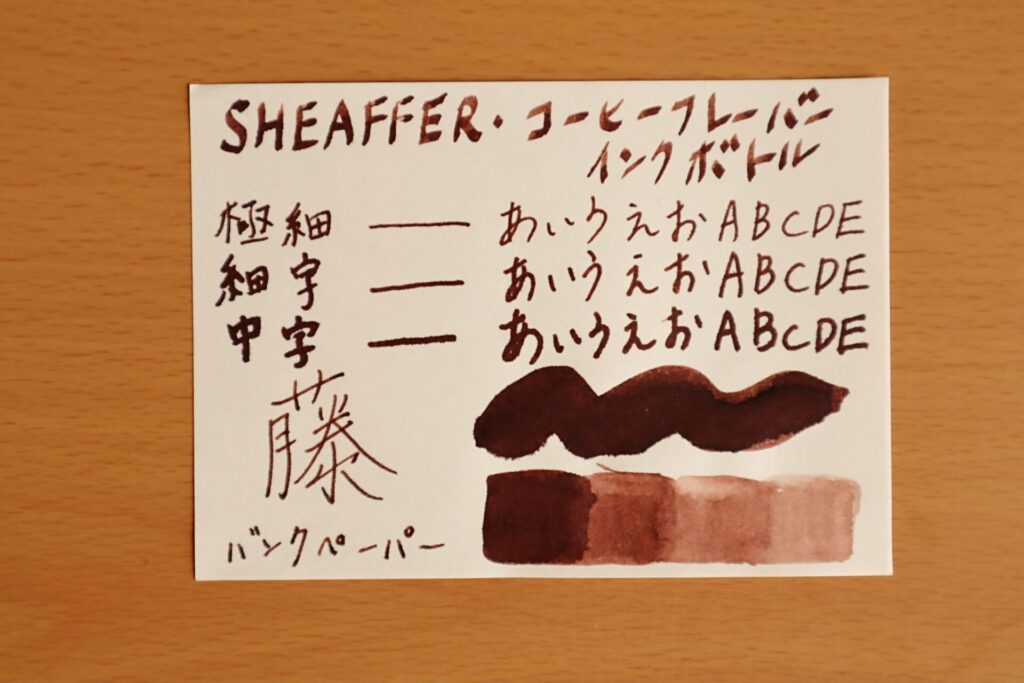 SHEAFFER・コーヒーフレーバー
インクボトル
極細 — あいうえお ABCDE
細字 — あいうえお ABCDE
中字 — あいうえお ABCDE
藤
バンクペーパー